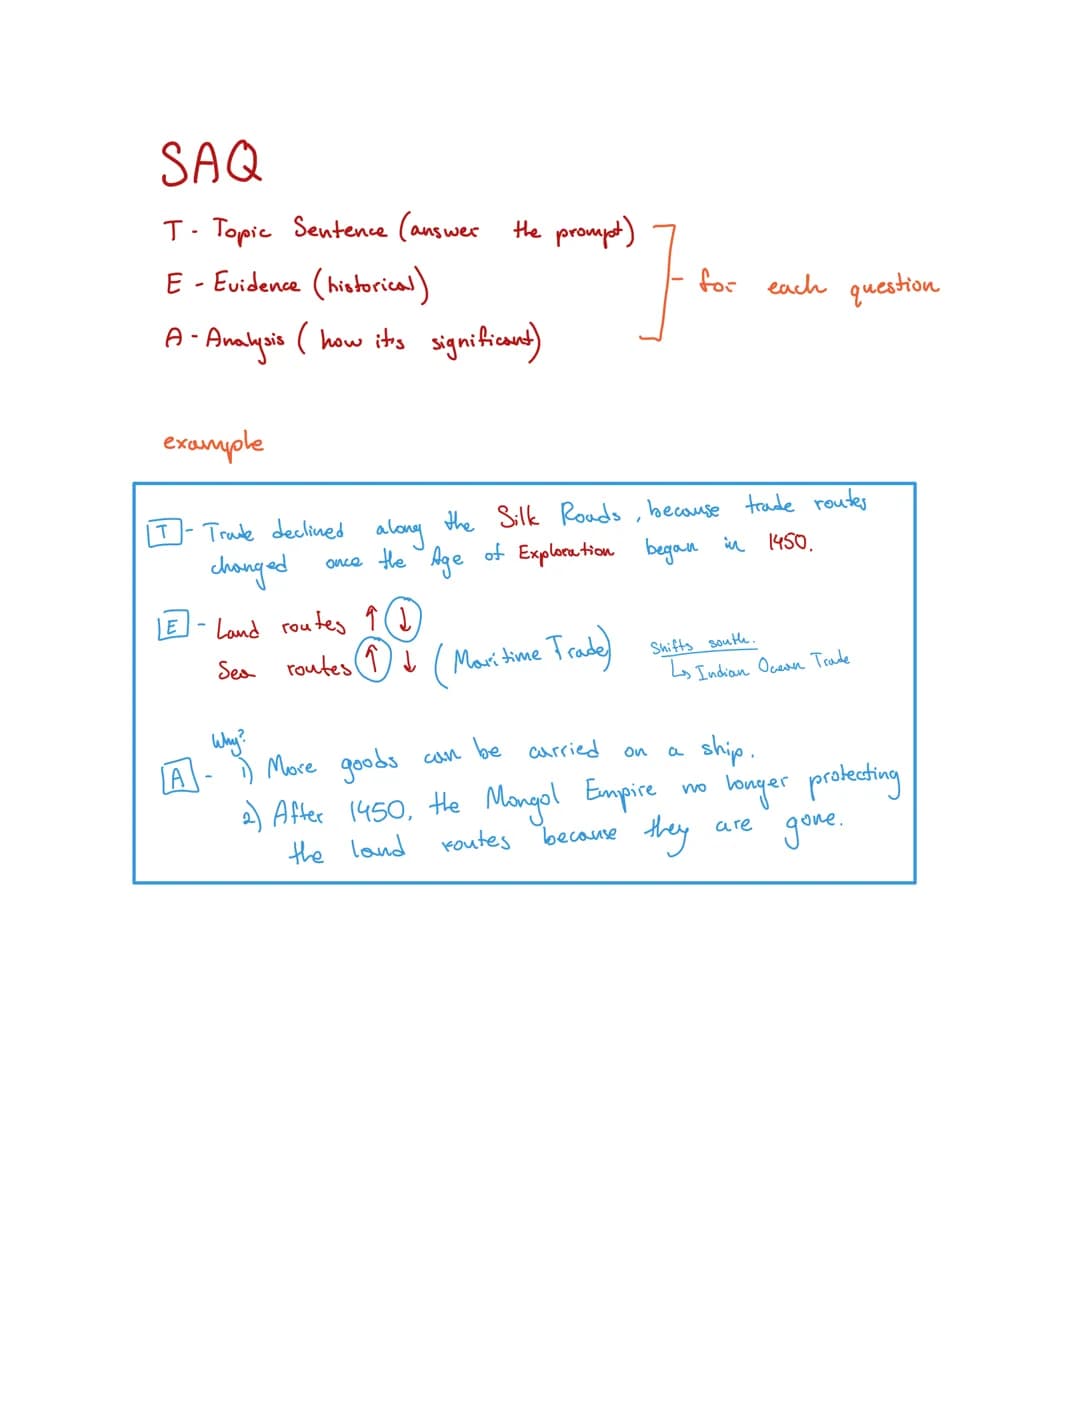 SAQ
T - Topic Sentence (answer the prompt)
E - Evidence (historical)
A - Analysis (how it's significant)
- for each question
example
T - Trade declined along the Silk Roads, because trade routes
changed once the Age of Exploration began in 1450.
E - Land routes ↑ ↓
Sea routes ↑ ↓ (Maritime Trade)
Shifts south.
↳ Indian Ocean Trade
Why?
A - 1) More goods can be carried on a ship.
2) After 1450, the Mongol Empire no longer protecting
the land routes because they are gone.